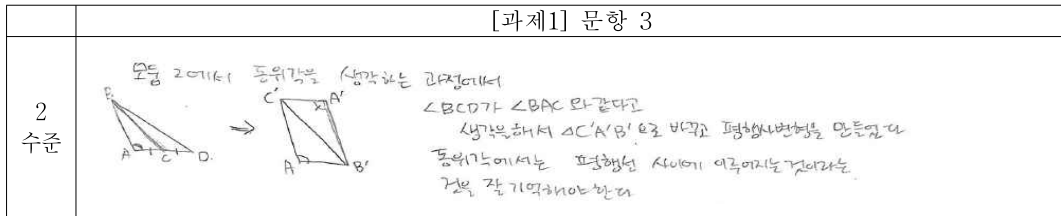 [과제1] 문항 3
2
수준
모둠 2에서 동위각을 생각하는 과정에서
∠BCD가 ∠BAC 와 같다고
생각을해서 △C'A'B' 으로 바꾸고 평행사변형을 만들었다
동위각에서는 평행선 사이에 이루어지는것이라는
것을 잘 기억해야 한다
B.
A
C'
D.
⇒
C'
A'
A
B'